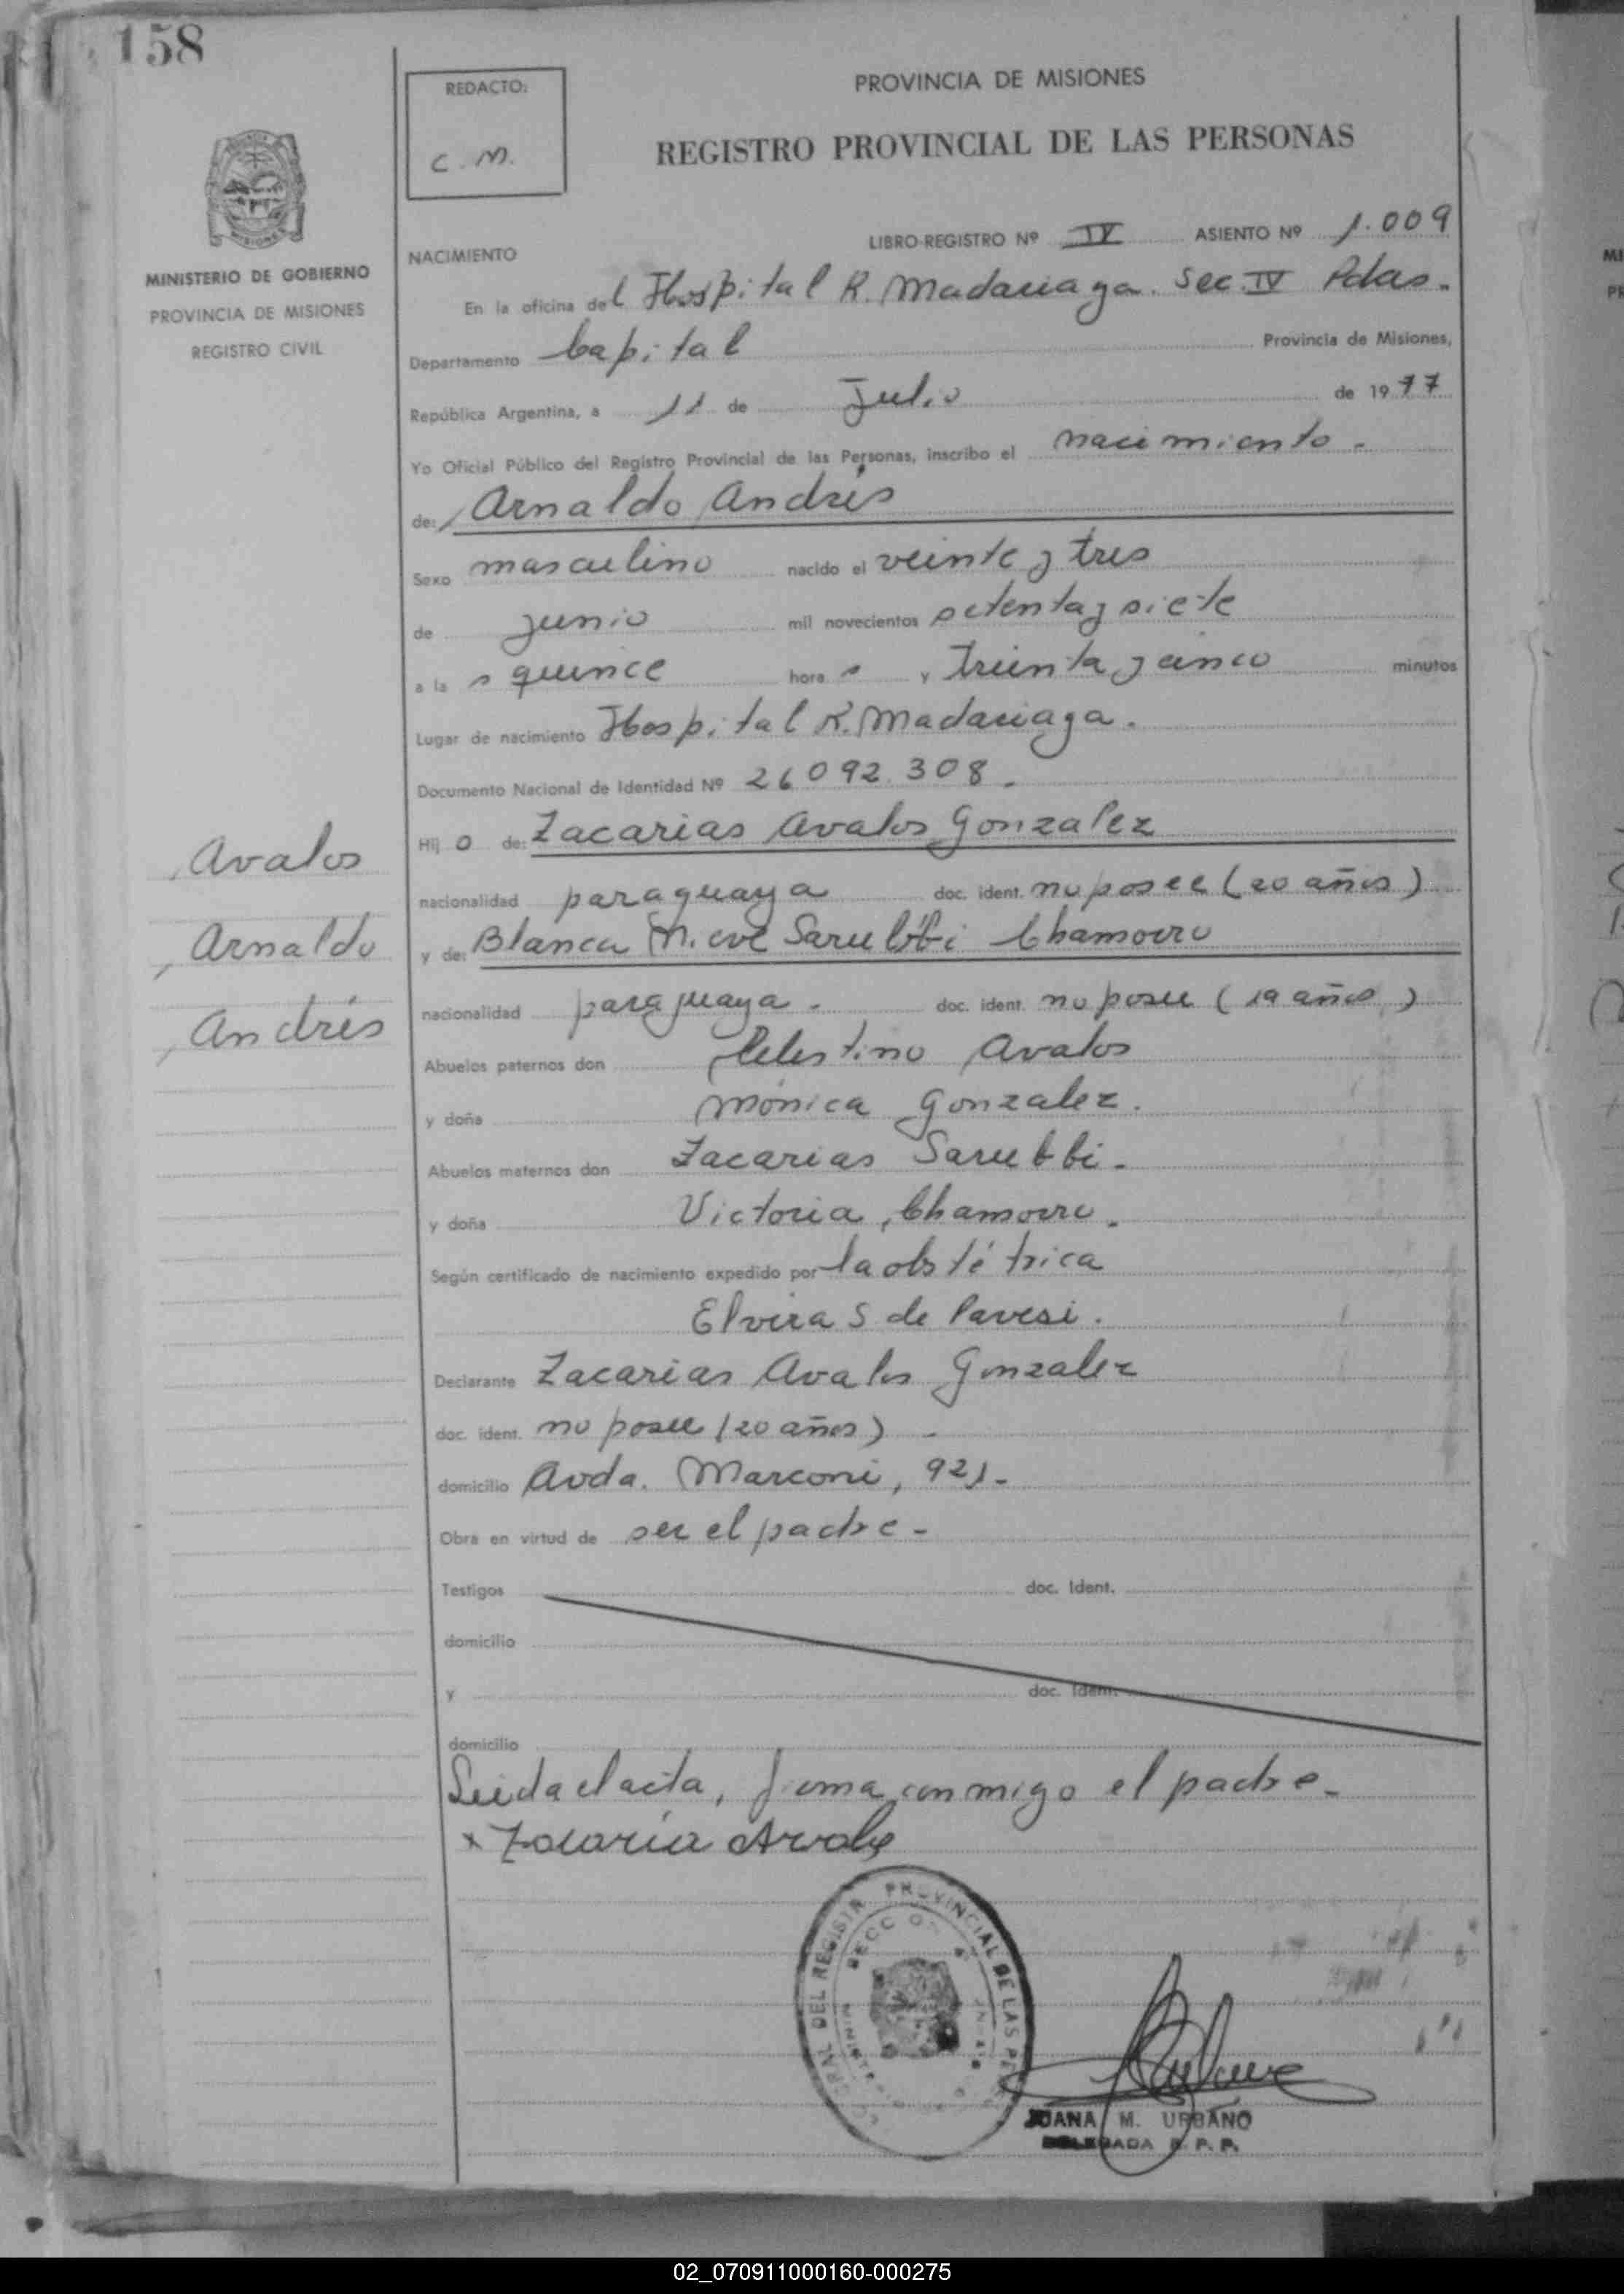 158
REDACTO:
C. M.
PROVINCIA DE MISIONES
REGISTRO PROVINCIAL DE LAS PERSONAS
MISIONES
MINISTERIO DE GOBIERNO
PROVINCIA DE MISIONES
REGISTRO CIVIL
LIBRO-REGISTRO Nº IV ASIENTO Nº 1.009
NACIMIENTO
En la oficina del Hospital R. Madariaga. Sec. IV Pdas.
Departamento Capital Provincia de Misiones,
República Argentina, a 11 de Julio de 1977
Yo Oficial Público del Registro Provincial de las Personas, inscribo el nacimiento.
de: Arnaldo Andrés
Sexo masculino nacido el veinte y tres
de junio mil novecientos setenta y siete
a la s quince hora s y treinta y cinco minutos
Lugar de nacimiento Hospital R. Madariaga.
Documento Nacional de Identidad Nº 26 092 308.
Hij o de: Zacarias Avalos Gonzalez
nacionalidad paraguaya doc. ident. no posee (20 años)
y de: Blanca Nieve Sarubbi Chamorro
nacionalidad paraguaya. doc. ident. no posee (19 años)
Avalos
Arnaldo
Andrés
Abuelos paternos don Celestino Avalos
y doña Mónica Gonzalez.
Abuelos maternos don Zacarias Sarubbi.
y doña Victoria Chamorro.
Según certificado de nacimiento expedido por la obstétrica
Elvira S de Pavesi.
Declarante Zacarias Avalos Gonzalez
doc. ident. no posee (20 años) -
domicilio Avda. Marconi, 921-
Obra en virtud de ser el padre-
Testigos doc. Ident.
domicilio
y doc. Ident.
domicilio
Leida el acta, firma conmigo el padre-
x Zacaria Avalos
PROVINCIAL DE LAS
DEL REGISTR
JUANA M. URBANO
DELEGADA R. P. P.
02_070911000160-000275